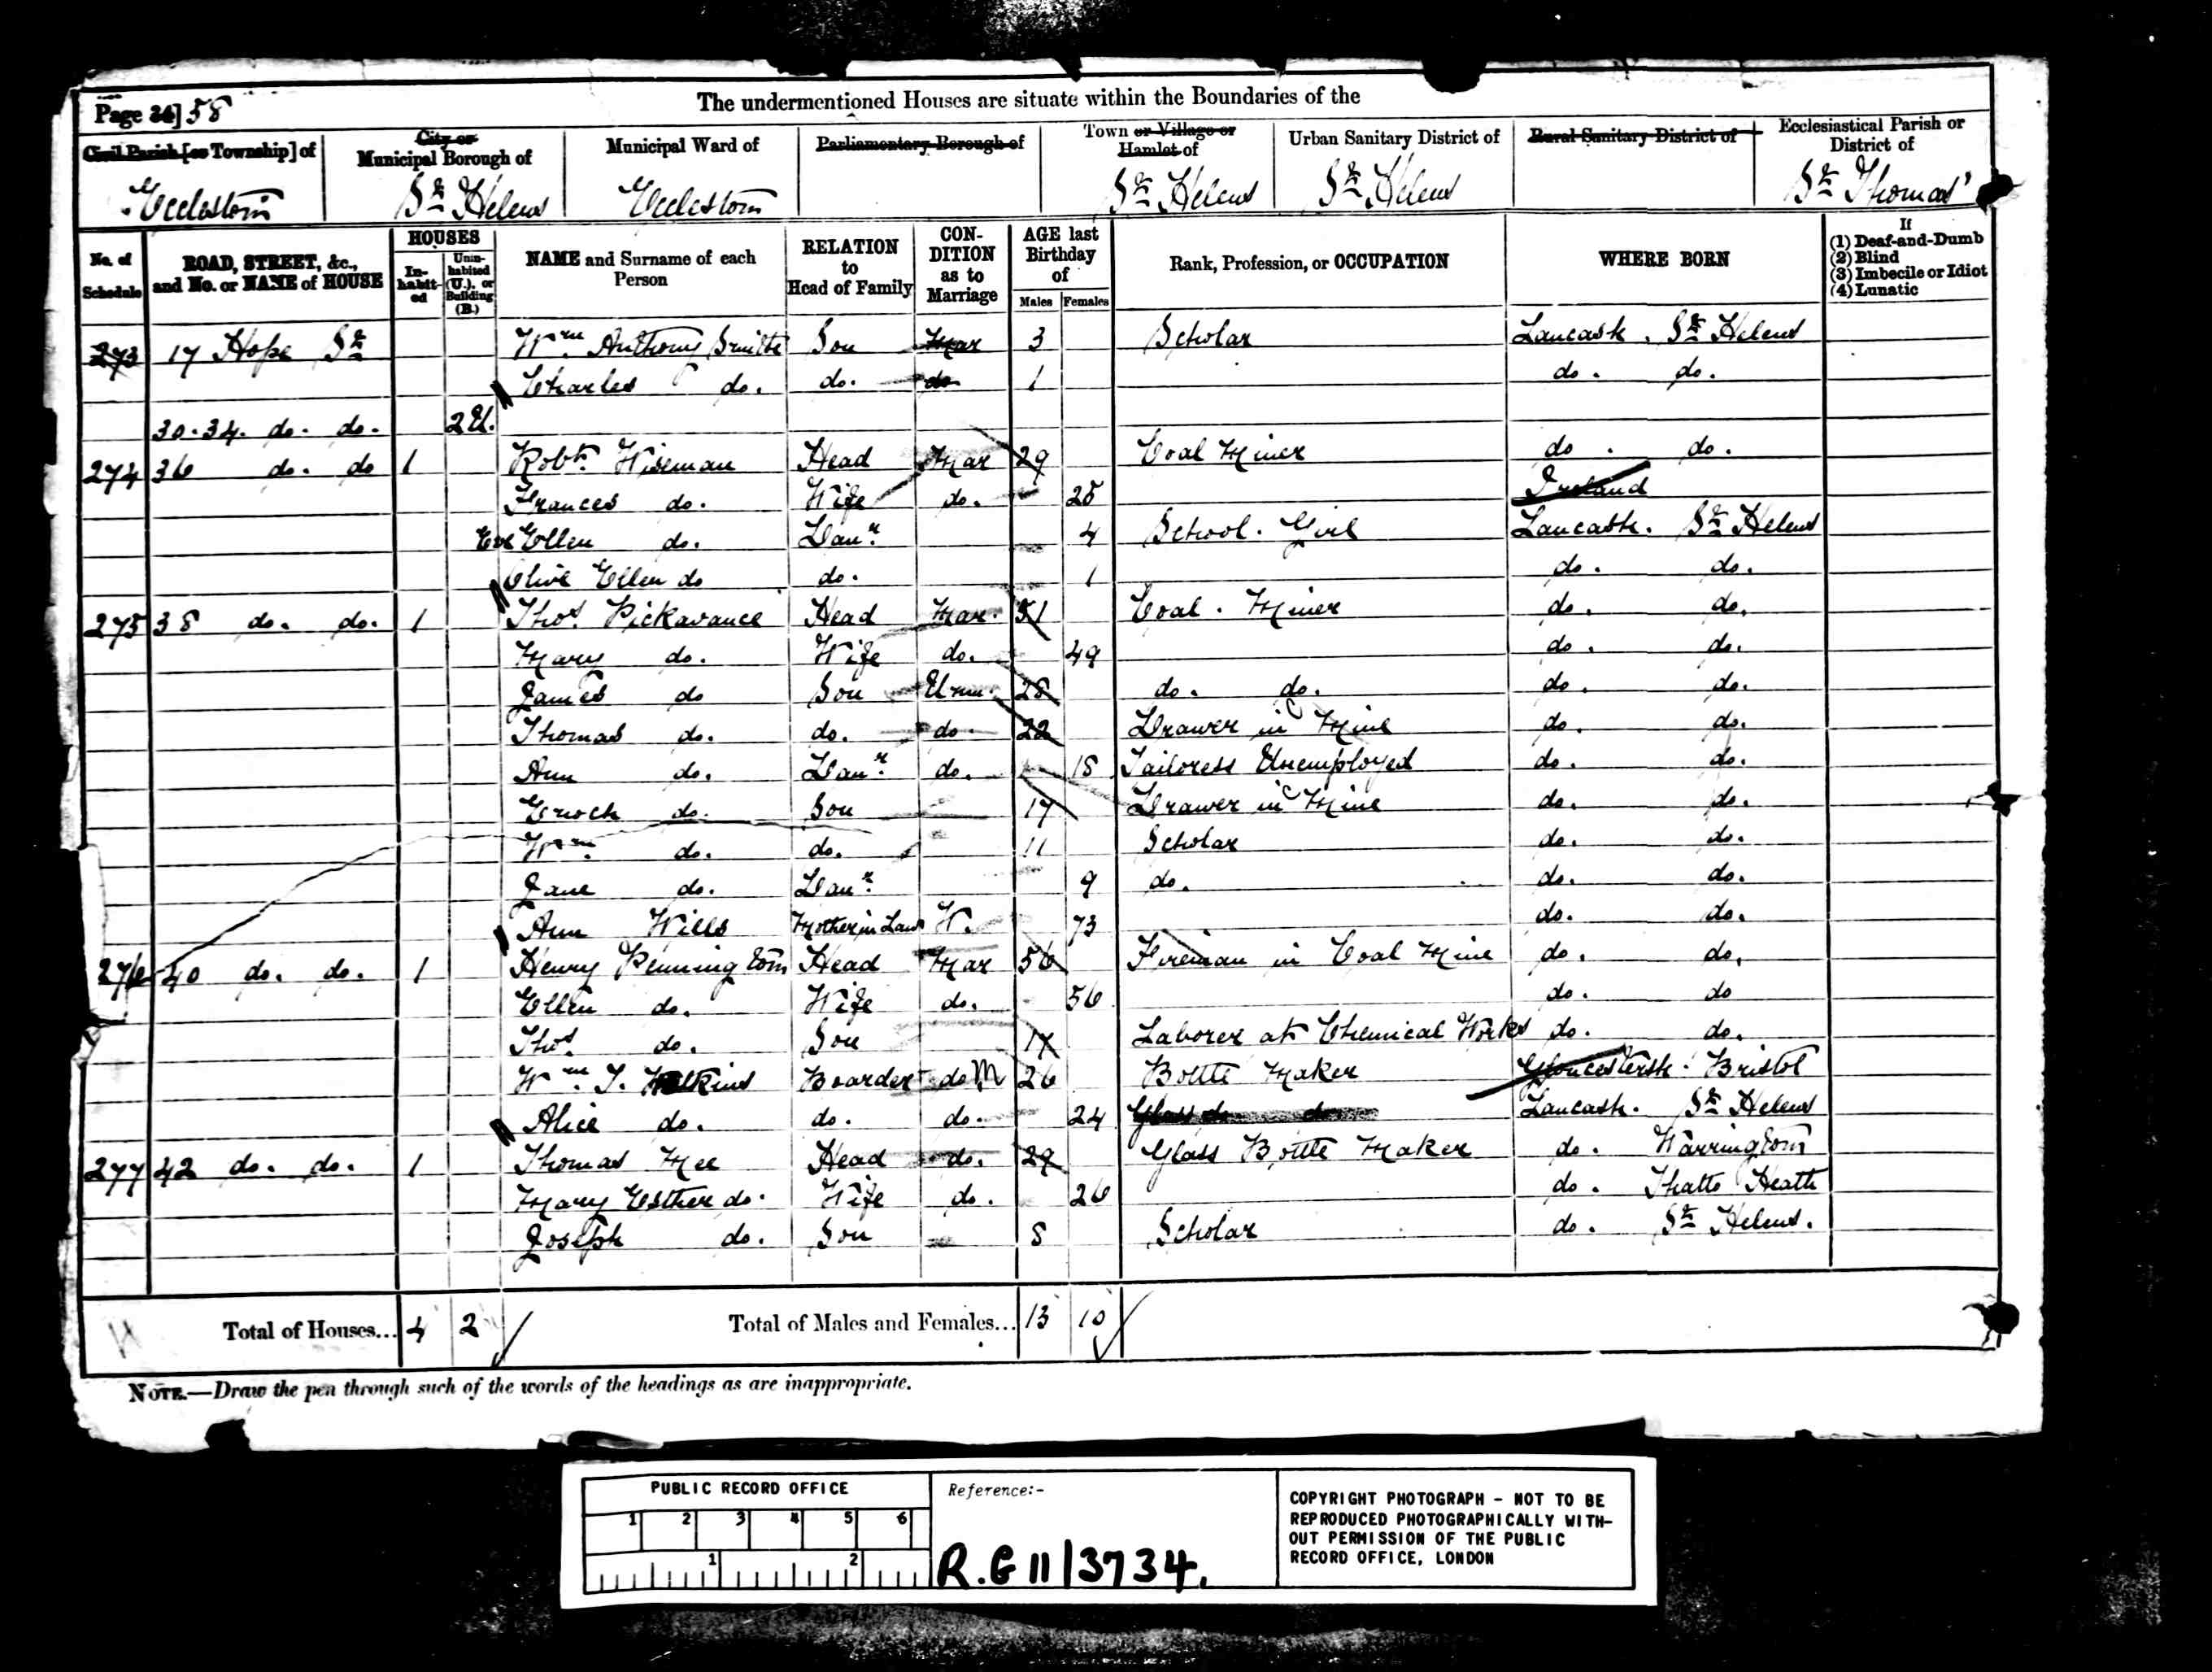 Page 24] 58
The undermentioned Houses are situate within the Boundaries of the
Civil Parish [or Township] of
City or Municipal Borough of
Municipal Ward of
Parliamentary Borough of
Town or Village or Hamlet of
Urban Sanitary District of
Rural Sanitary District of
Ecclesiastical Parish or District of
Eccleston St Helens Eccleston St Helens St Helens St Thomas'
No. of Schedule
ROAD, STREET, &c., and No. or NAME of HOUSE
HOUSES
In-habit-ed
Unin-habited (U.), or Building (B.)
NAME and Surname of each Person
RELATION to Head of Family
CON-DITION as to Marriage
AGE last Birthday of
Males Females
Rank, Profession, or OCCUPATION
WHERE BORN
If
(1) Deaf-and-Dumb
(2) Blind
(3) Imbecile or Idiot
(4) Lunatic
273 17 Hope St Wm Anthony Smith Son Mar 3 Scholar Lancash. St Helens
Charles do. do. do. 1 do. do.
30.34. do. do. 2 U.
274 36 do. do 1 Robt. Wiseman Head Mar 29 Coal Miner do. do.
Frances do. Wife do. 25 Ireland
Ellen do. Daur. 4 School. Girl Lancash. St Helens
Olive Ellen do do. 1 do. do.
275 38 do. do. 1 Thos. Pickavance Head Mar. 51 Coal. Miner do. do.
Mary do. Wife do. 49 do. do.
James do Son Unm. 25 do. do. do. do.
Thomas do. do. do. 22 Drawer in Mine do. do.
Ann do. Daur. do. 18 Tailoress Unemployed do. do.
Enoch do. Son 17 Drawer in Mine do. do.
Wm do. do. 11 Scholar do. do.
Jane do. Daur. 9 do. do. do.
Ann Wills Mother in Law W. 73 do. do.
276 40 do. do. 1 Henry Pennington Head Mar 56 Fireman in Coal Mine do. do.
Ellen do. Wife do. 56 do. do
Thos. do. Son 17 Laborer at Chemical Works do. do.
Wm. J. Boarder do M 26 Bottle Maker Gloucestersh. Bristol
Alice do. do. do. 24 Glass do do Lancash. St Helens
277 42 do. do. 1 Thomas Mee Head do. 29 Glass Bottle Maker do. Warrington
Mary Esther do. Wife do. 26 do. Thatto Heath
Joseph do. Son 8 Scholar do. St Helens.
Total of Houses... 4 2 Total of Males and Females... 13 10
NOTE.—Draw the pen through such of the words of the headings as are inappropriate.
PUBLIC RECORD OFFICE
1 2 3 4 5 6
1 2
Reference:-
R.G 11/3734.
COPYRIGHT PHOTOGRAPH - NOT TO BE
REPRODUCED PHOTOGRAPHICALLY WITH-
OUT PERMISSION OF THE PUBLIC
RECORD OFFICE, LONDON